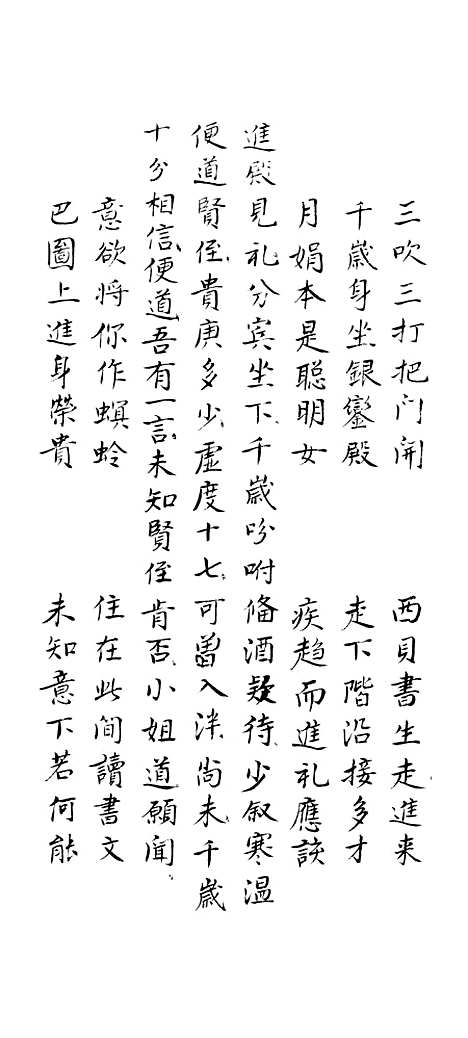 三吹三打把门開　西貝書生走進来
千歲身坐銀鑾殿　走下階沿接多才
月娟本是聪明女　疾趋而進礼應該
進殿見礼分賓坐下千歲吩咐俻酒欵待少叙寒温
便道賢侄貴庚多少虛度十七可曽入泮尚未千歲
十分相信便道吾有一言未知賢侄肯否小姐道願聞
意欲将你作螟蛉　住在此间讀書文
巴圖上進身榮貴　未知意下若何能